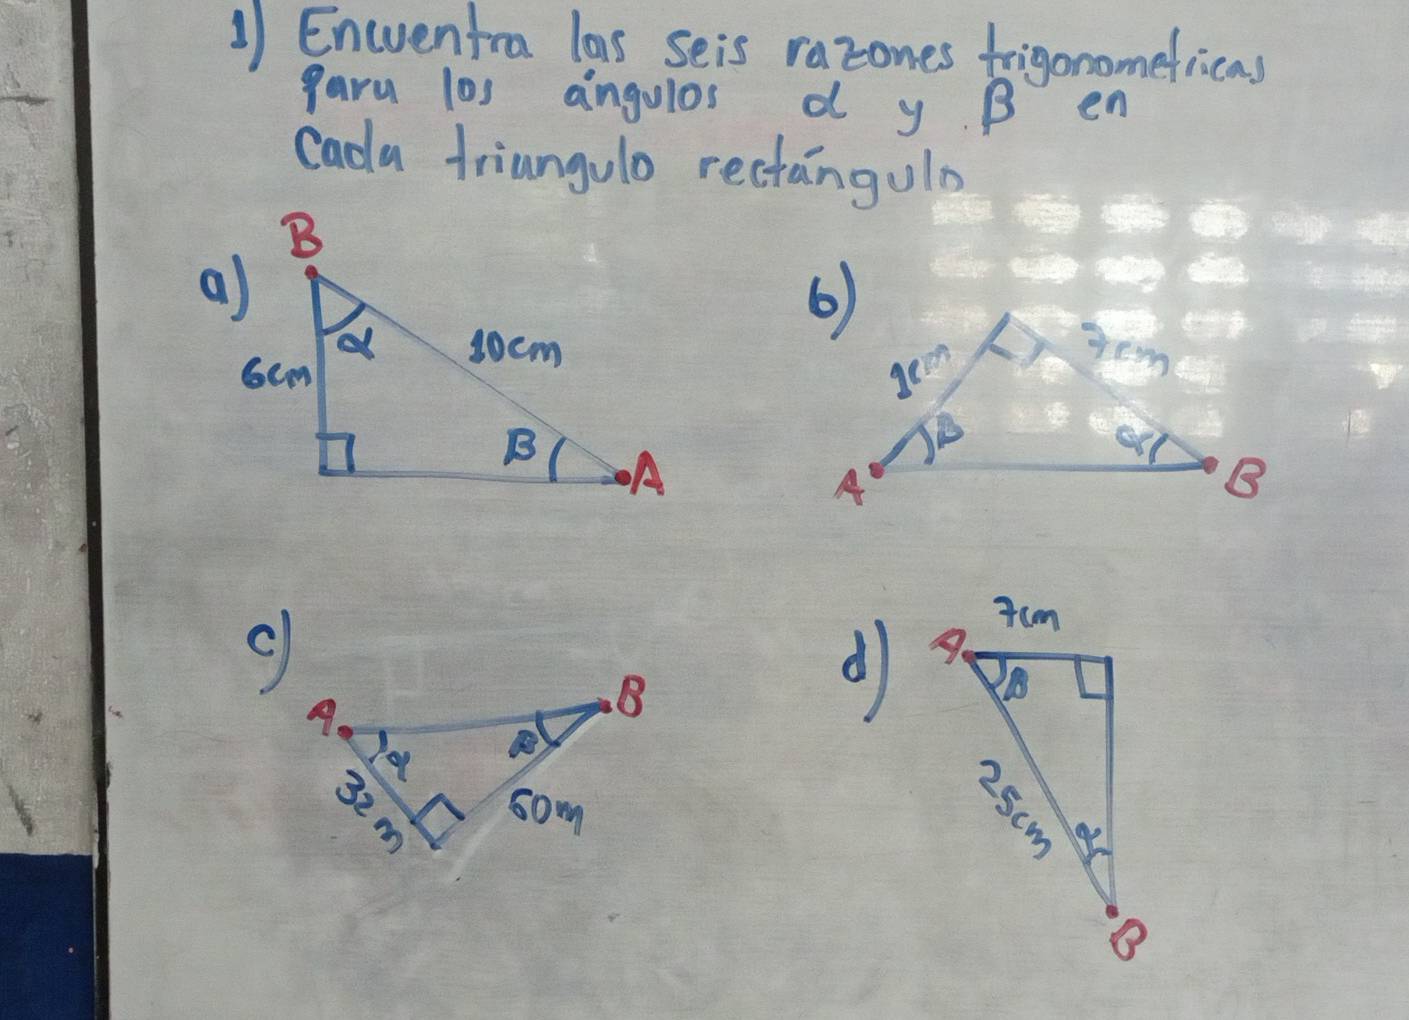 1) Encuentra las seis razones trigonometricas
para los ángulos α y β en
Cada triangulo rectángulo
a)
B
α
6cm
10cm
β
A
b)
1cm
7cm
β
α
A
B
c)
A
B
α
β
32m
60m
d)
7cm
A
β
25cm
α
B